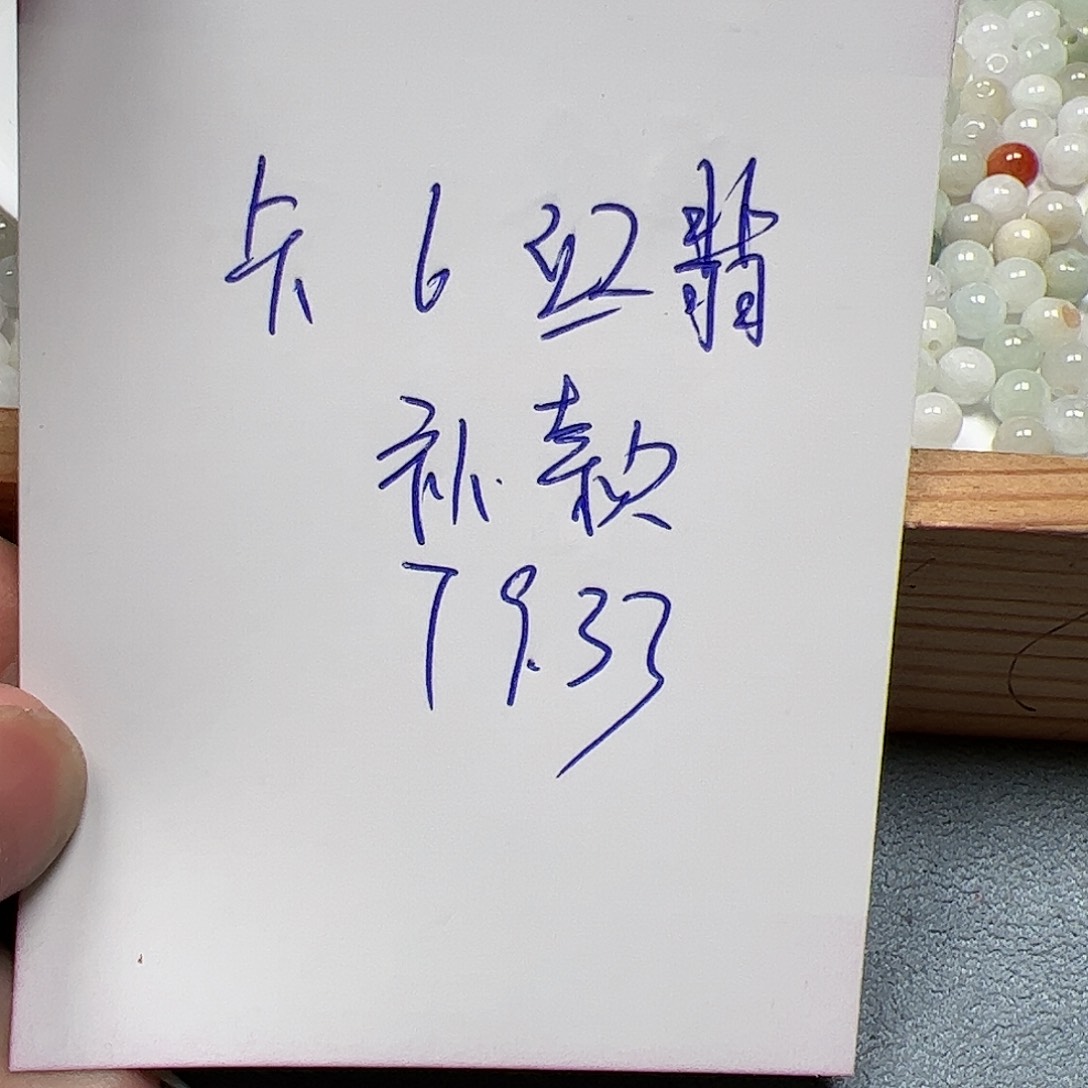 卡 6 红翡
补款
79.33